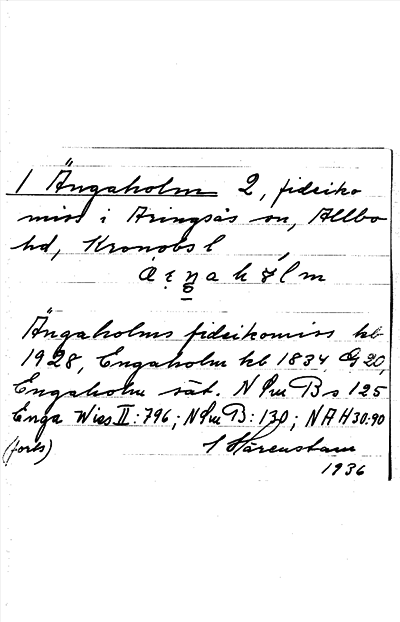 1 Ängaholm 2, fideiko
miss i Aringsås sn, Allbo
hd, Kronobs l
Ängaholms fideikomiss kb
1928, Engaholm kb 1834 G 20,
Engaholm sät. N Sm B s 125
Enga Wies II:796; N Sm B:130; NAH 30:90
(forts) Härenstam
1936